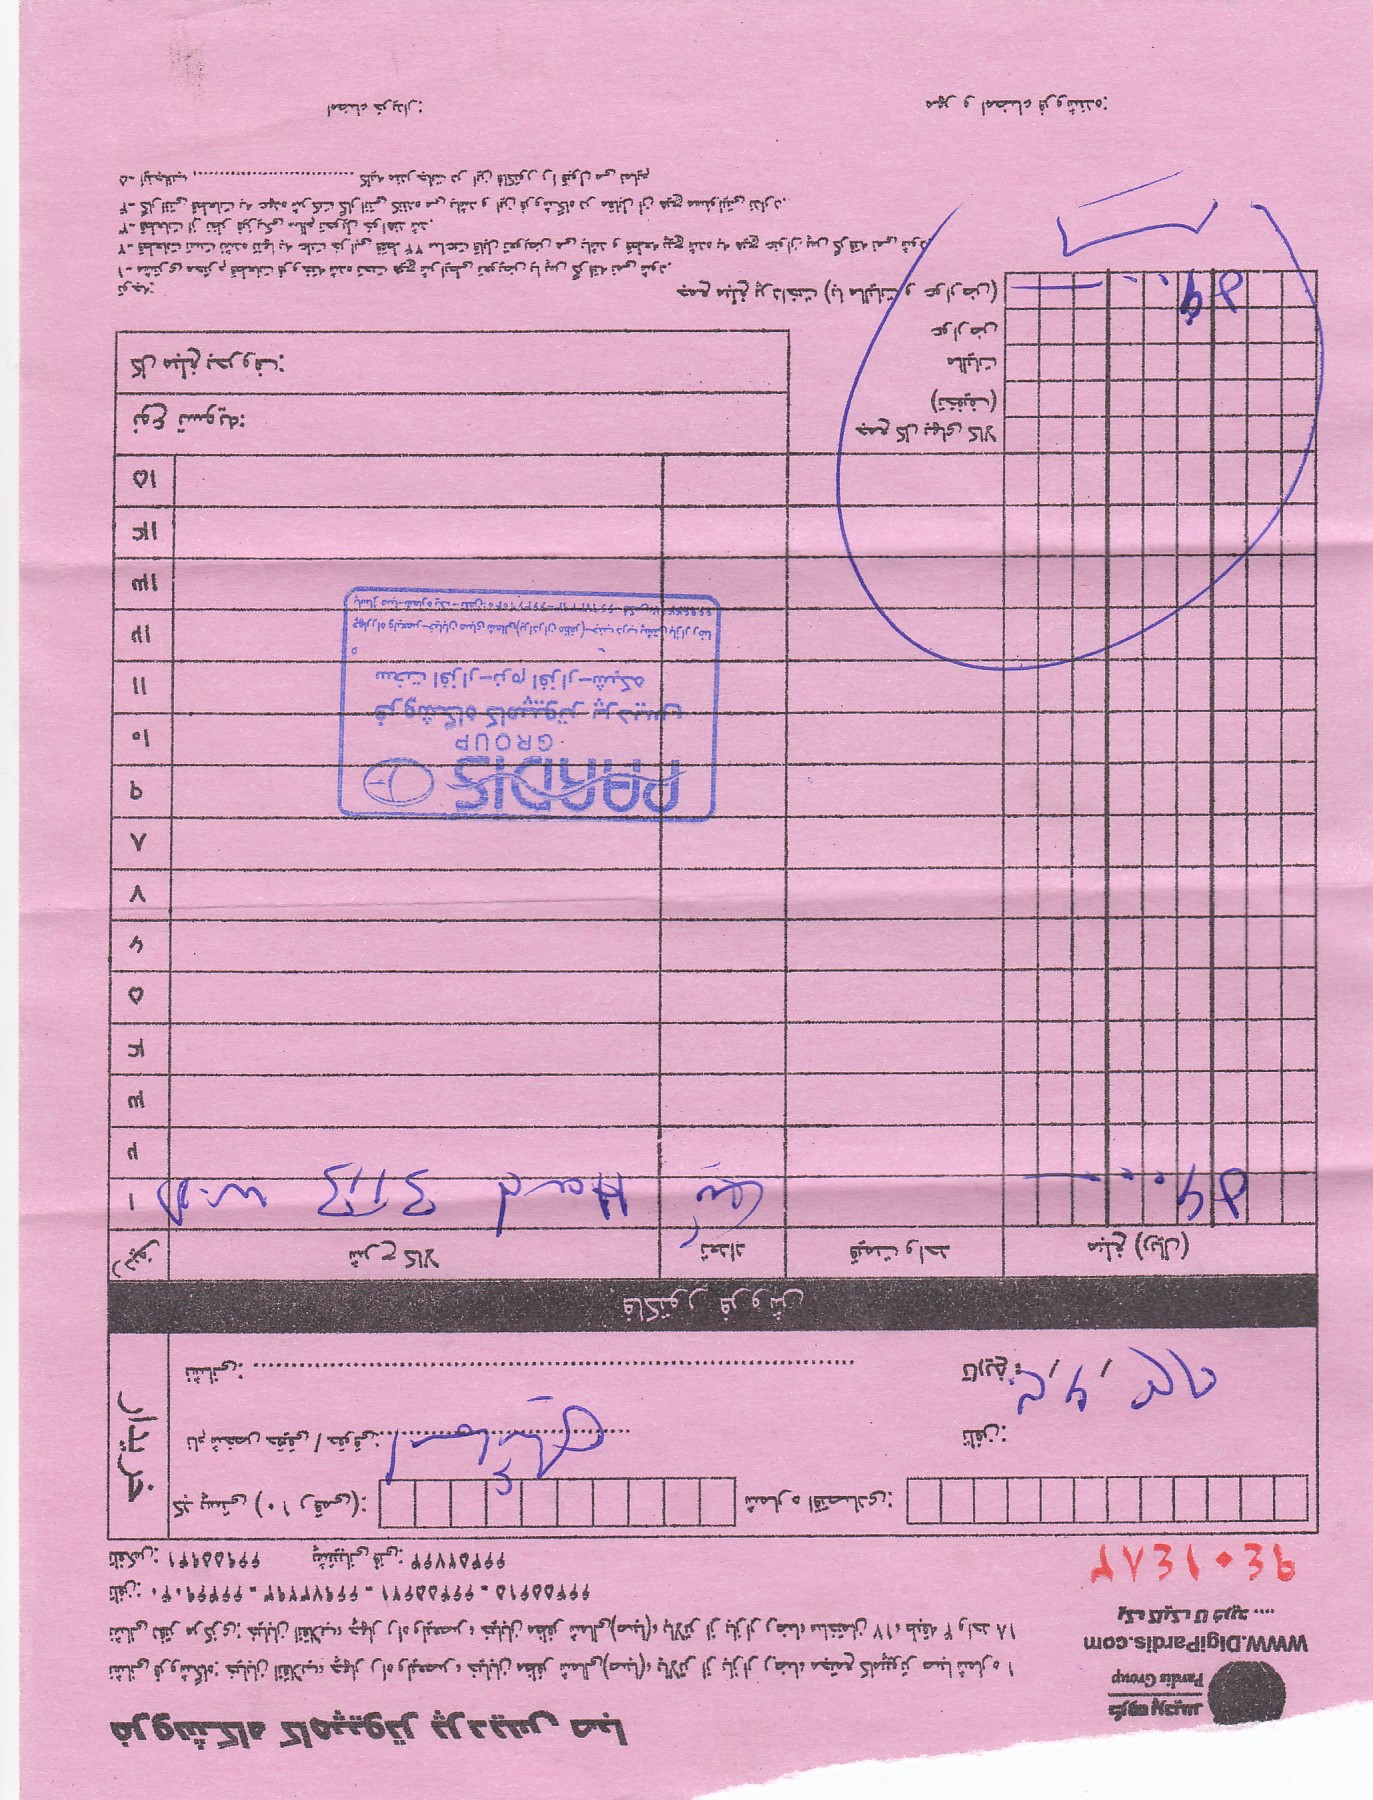 فروشگاه کامپیوتر پردیس صبا
گروه پردیس
Pardis Group
WWW.DigiPardis.com
یک کلیک تا خرید ....
نشانی فروشگاه: خیابان انقلاب، چهار راه ولیعصر، خیابان مظفر شمالی(صبا)، بالاتر از بازار رضا، مجتمع کامپیوتر صبا شماره ۱
نشانی دفتر مرکزی: خیابان انقلاب، چهار راه ولیعصر، خیابان مظفر شمالی(صبا)، بالاتر از بازار رضا، ساختمان ۱۷، طبقه ۴ واحد ۱۸
تلفن: ۶۶۴۶۹۰۴۰ - ۶۶۹۷۳۲۹۳ - ۶۶۴۵۵۶۲۱ - ۶۶۴۵۵۶۱۵
تلفکس: ۶۶۹۵۵۹۴۱ پشتیبانی فنی: ۶۶۴۵۲۷۶۴
۹٤۰۱٤۸۲
خریدار
کد پستی (۱۰ رقمی): شماره اقتصادی:
نام شخص حقیقی / حقوقی: اسمائیلی تلفن:
نشانی: تاریخ: ۹۳,۶,۳۰
فاکتور فروش
ردیف شرح کالا تعداد قیمت واحد مبلغ (ریال)
۱ Hard 3TB W.D یک ۵۶۰۰۰—
۲
۳
۴
۵
۶
۷
۸
۹
۱۰
۱۱
۱۲
۱۳
۱۴
۱۵
PARDIS
GROUP
فروشگاه کامپیوتر پردیس
سخت افزار-نرم افزار-شبکه
چهارراه ولیعصر-خیابان صبای شمالی(برادران مظفر)-جنب درب پشتی بازار رضا
پاساژ صبا-شماره یک - تلفن: ۶۶۴۶۹۰۴۰-۶۶۹۷۳۲۹۳- فکس:
نوع تسویه:
کل مبلغ بحروف:
جمع کل بهای کالا
(تخفیف)
مالیات
عوارض
جمع مبلغ پرداخت (با مالیات و عوارض) ۵۶۰۰۰—
توجه:
۱- مشتری محترم قطعات فروخته شده تحت هیچ شرایطی تعویض یا پس گرفته نمی شود.
۲- قطعات تست نشده تنها به علت خرابی فقط ۲۴ ساعت قابل تعویض می باشد و قطعه پیچ شده به هیچ عنوان پس گرفته نمی شود.
۳- قطعات از نظر فیزیکی سالم تحویل خواهند شد.
۴- گارانتی قطعات به عهده شرکت گارانتی کننده می باشد و این فروشگاه در مقابل آن هیچ مسئولیتی ندارد.
۵- اینجانب .............................. کلیه مندرجات در این فاکتور را قبول می نمایم
امضاء خریدار: مهر و امضاء فروشنده: